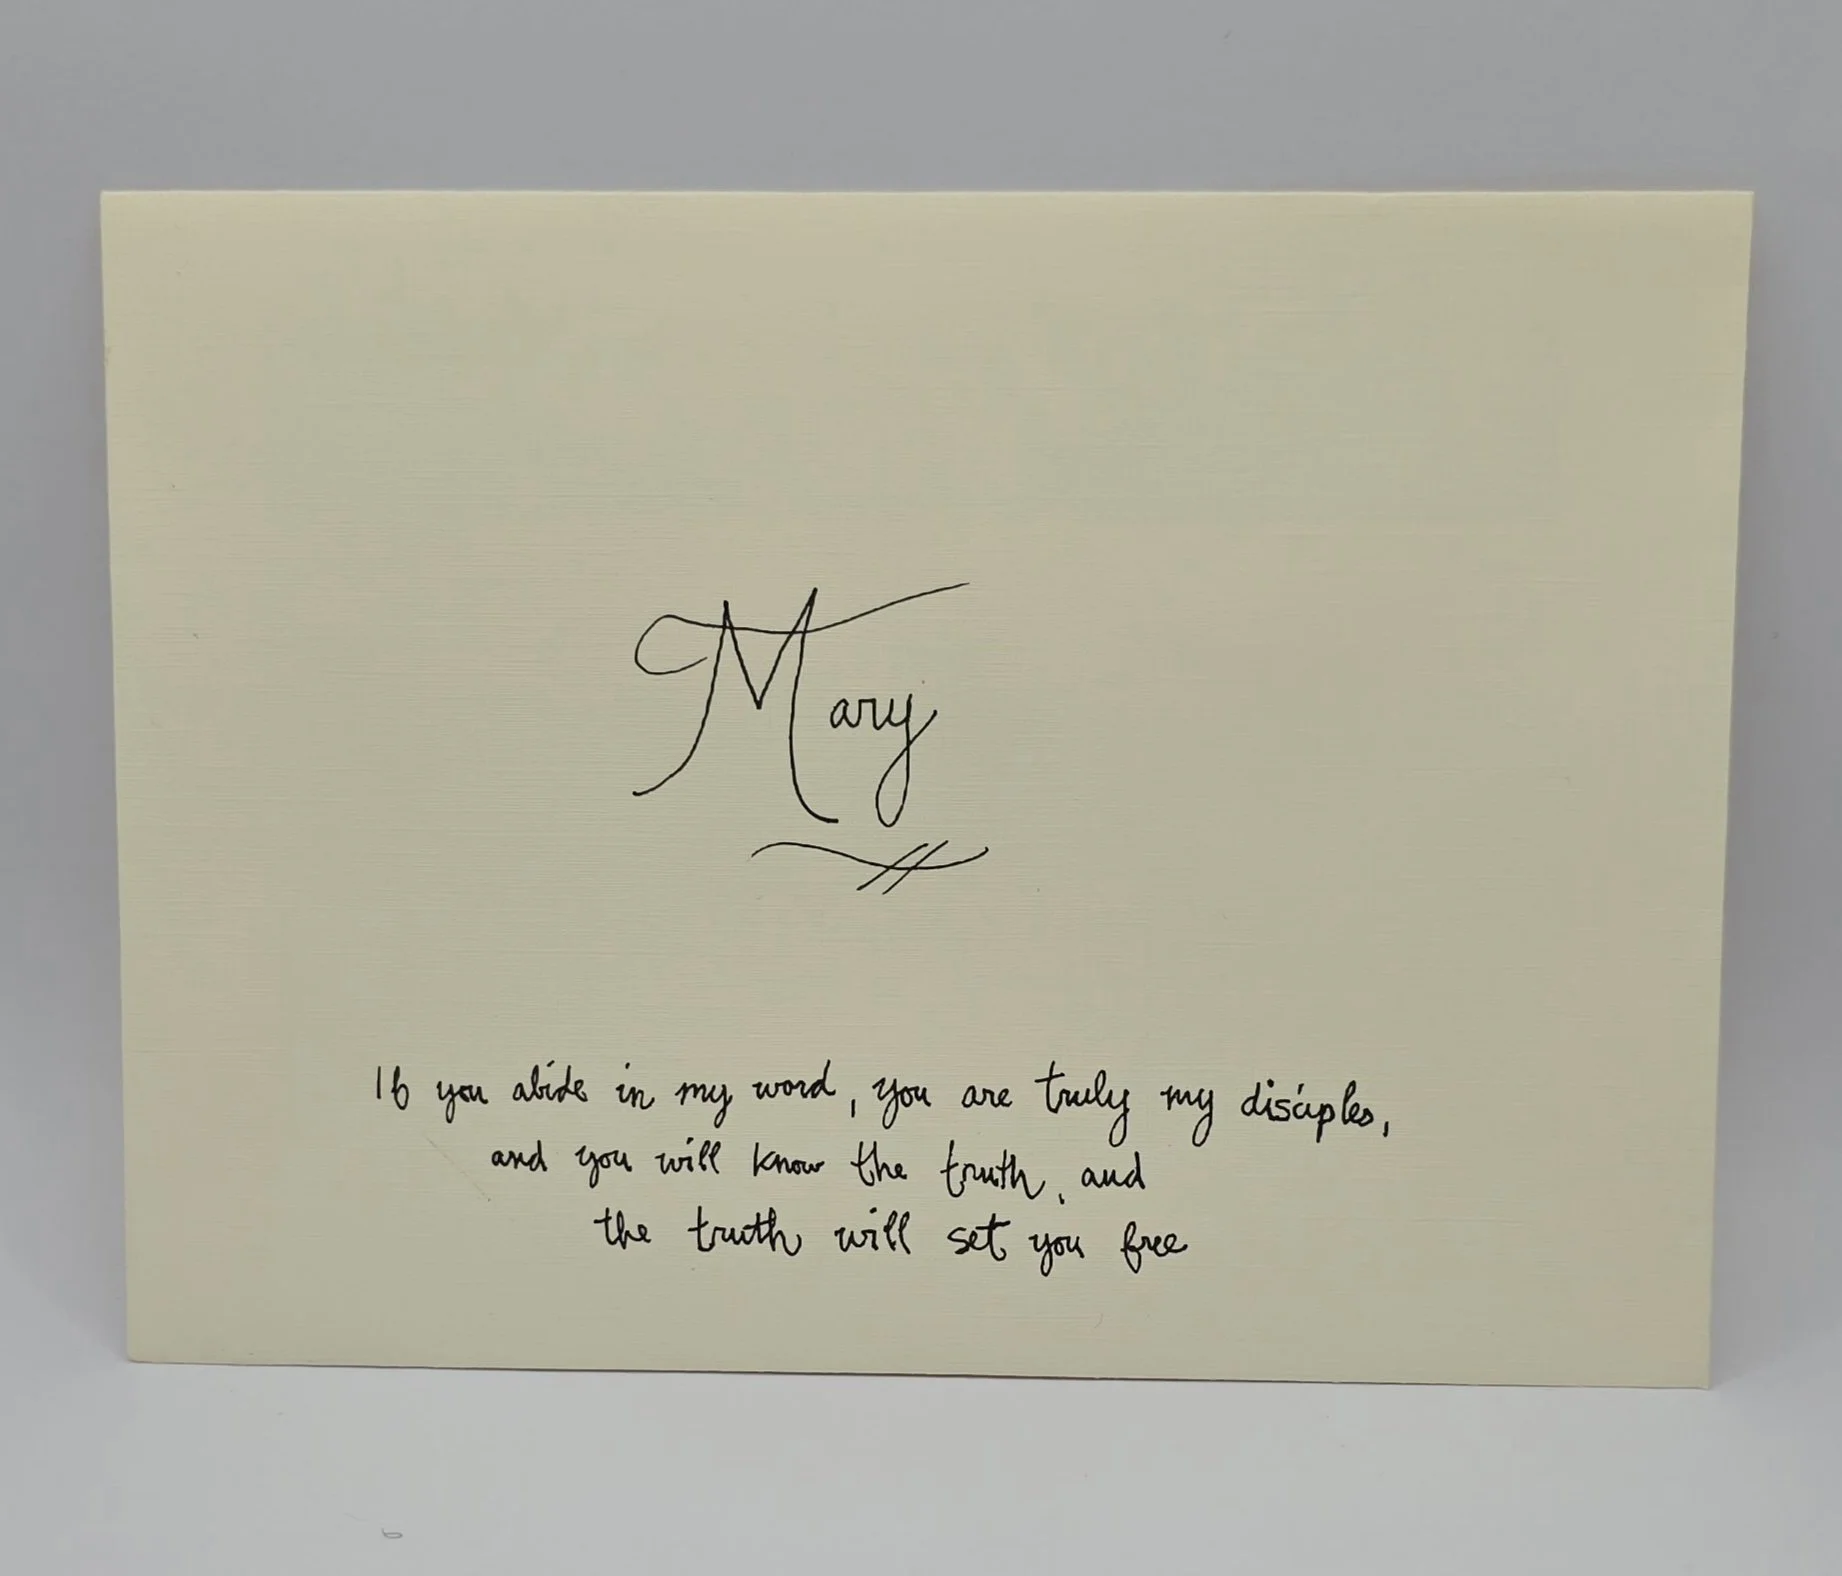 Mary
If you abide in my word, you are truly my disciples,
and you will know the truth, and
the truth will set you free